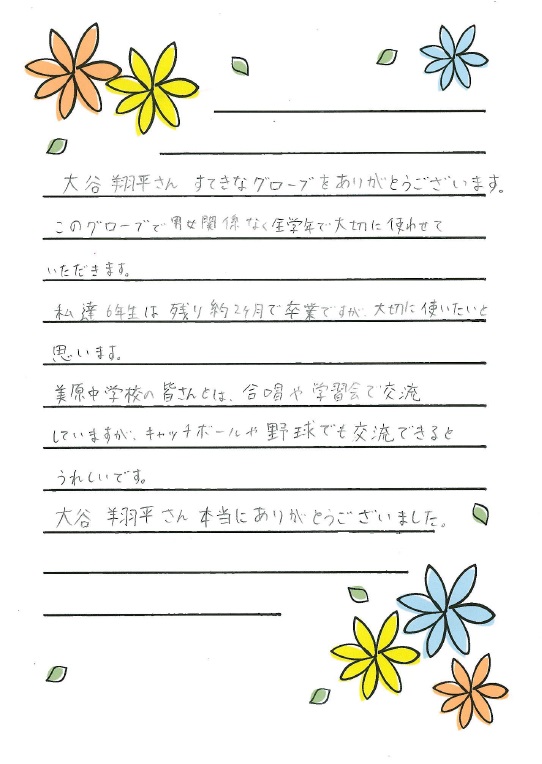 大谷翔平さん すてきなグローブをありがとうございます。
このグローブで男女関係なく全学年で大切に使わせて
いただきます。
私達6年生は残り約2ヶ月で卒業ですが、大切に使いたいと
思います。
美原中学校の皆さんとは、合唱や学習会で交流
していますが、キャッチボールや野球でも交流できると
うれしいです。
大谷翔平さん本当にありがとうございました。